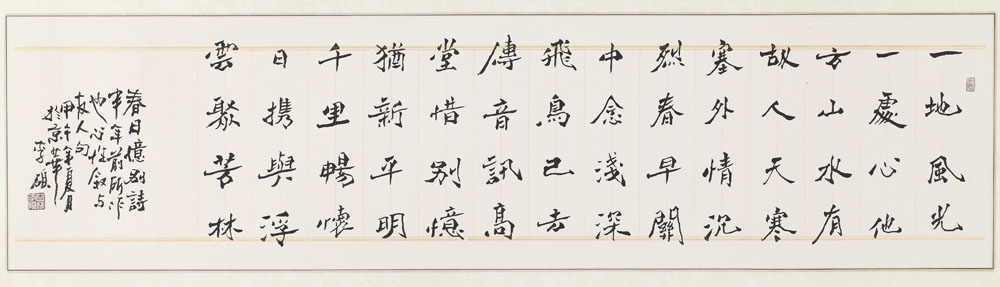 一地風光
一處心他
方山水有
故人天寒
塞外情沉
烈春早關
中念淺深
飛鳥已去
傳音訊高
堂惜别憶
猶新平明
千里暢懷
日携與浮
雲聚苦林
春日憶别詩
半年前所作
也心性敘与
友人句
甲午年夏月
於京華
李碩